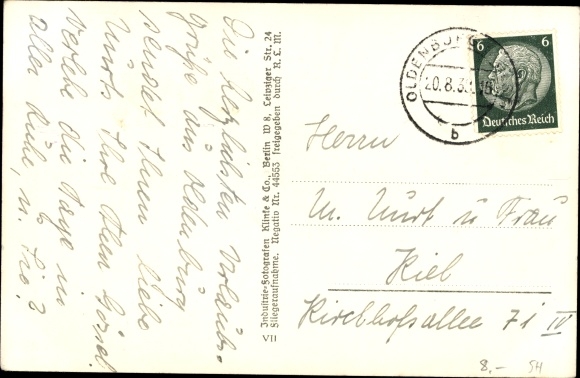 Die herzlichsten Urlaubs-
grüße aus Oldenburg
sendet Ihnen liebe
Ihre
verlebe die Tage in
aller Ruhe, u. Sie?
VII
Industrie-Fotografen Klinke & Co., Berlin W 8, Leipziger Str. 24
Fliegeraufnahme. Negativ Nr. 44553 freigegeben durch R. L. M.
OLDENBURG
20.8.3
b
6 6
Deutsches Reich
Herrn
M. Murt u Frau
Kiel
Kirchhofsallee 71 IV
8,- SH